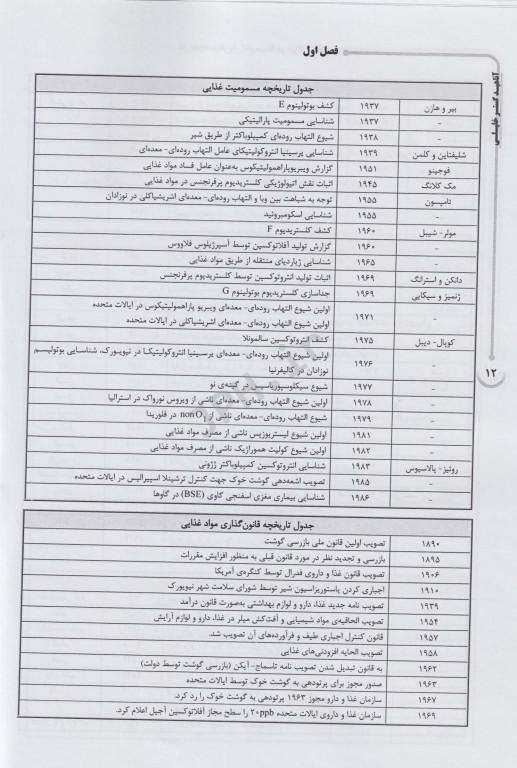 فصل اول
آناهید گستر فارابی
جدول تاریخچه مسمومیت غذایی
بیر و هازن ۱۹۳۷ کشف بوتولینوم E
- ۱۹۳۷ شناسایی مسمومیت پارالیتیکی
- ۱۹۳۸ شیوع التهاب روده‌ای کمپیلوباکتر از طریق شیر
شلیفتاین و کلمن ۱۹۳۹ شناسایی یرسینیا انتروکولیتیکای عامل التهاب روده‌ای- معده‌ای
فوجینو ۱۹۵۱ گزارش ویبریوپاراهمولیتیکوس به‌عنوان عامل فساد مواد غذایی
مک کلانگ ۱۹۴۵ اثبات نقش اتیولوژیکی کلستریدیوم پرفرنجنس در مواد غذایی
تامپسون ۱۹۵۵ توجه به شباهت بین وبا و التهاب روده‌ای- معده‌ای اشریشیاکلی در نوزادان
- ۱۹۵۵ شناسایی اسکومبروئید
مولر- شیبل ۱۹۶۰ کشف کلستریدیوم F
- ۱۹۶۰ گزارش تولید آفلاتوکسین توسط آسپرژیلوس فلاووس
- ۱۹۶۵ شناسایی ژیاردیای منتقله از طریق مواد غذایی
دانکن و استرانگ ۱۹۶۹ اثبات تولید انتروتوکسین توسط کلستریدیوم پرفرنجنس
ژنمیز و سیکایی ۱۹۶۹ جداسازی کلستریدیوم بوتولینوم G
- ۱۹۷۱ اولین شیوع التهاب روده‌ای- معده‌ای ویبریو پاراهمولیتیکوس در ایالات متحده
اولین شیوع التهاب روده‌ای- معده‌ای اشریشیاکلی در ایالات متحده
کوپال- دیبل ۱۹۷۵ کشف انتروتوکسین سالمونلا
- ۱۹۷۶ اولین شیوع التهاب روده‌ای- معده‌ای یرسینیا انتروکولیتیکا در نیویورک، شناسایی بوتولیسم
نوزادان در کالیفرنیا
- ۱۹۷۷ شیوع سیکلوسپوریاسیس در گینه‌ی نو
- ۱۹۷۸ اولین شیوع التهاب روده‌ای- معده‌ای ناشی از ویروس نورواک در استرالیا
- ۱۹۷۹ شیوع التهاب روده‌ای- معده‌ای ناشی از non O₁ در فلوریدا
- ۱۹۸۱ اولین شیوع لیستریوزیس ناشی از مصرف مواد غذایی
- ۱۹۸۲ اولین شیوع کولیت هموراژیک ناشی از مصرف مواد غذایی
روئیز- پالاسیوس ۱۹۸۳ شناسایی انتروتوکسین کمپیلوباکتر ژژونی
- ۱۹۸۵ تصویب اشعه‌دهی گوشت خوک جهت کنترل ترشینلا اسپیرالیس در ایالات متحده
- ۱۹۸۶ شناسایی بیماری مغزی اسفنجی گاوی (BSE) در گاوها
۱۲
جدول تاریخچه قانون‌گذاری مواد غذایی
۱۸۹۰ تصویب اولین قانون ملی بازرسی گوشت
۱۸۹۵ بازرسی و تجدید نظر در مورد قانون قبلی به منظور افزایش مقررات
۱۹۰۶ تصویب قانون غذا و داروی فدرال توسط کنگره‌ی آمریکا
۱۹۱۰ اجباری کردن پاستوریزاسیون شیر توسط شورای سلامت شهر نیویورک
۱۹۳۹ تصویب نامه جدید غذا، دارو و لوازم بهداشتی به‌صورت قانون درآمد
۱۹۵۴ تصویب الحاقیه‌ی مواد شیمیایی و آفت‌کش میلر در غذا، دارو و لوازم آرایش
۱۹۵۷ قانون کنترل اجباری طیف و فرآورده‌های آن تصویب شد.
۱۹۵۸ تصویب الحایه افزودنی‌های غذایی
۱۹۶۲ به قانون تبدیل شدن تصویب نامه تاسماج- آیکن (بازرسی گوشت توسط دولت)
۱۹۶۳ صدور مجوز برای پرتودهی به گوشت خوک توسط ایالات متحده
۱۹۶۷ سازمان غذا و دارو مجوز ۱۹۶۳ پرتودهی به گوشت خوک را رد کرد.
۱۹۶۹ سازمان غذا و داروی ایالات متحده ۲۰ppb را سطح مجاز آفلاتوکسین آجیل اعلام کرد.